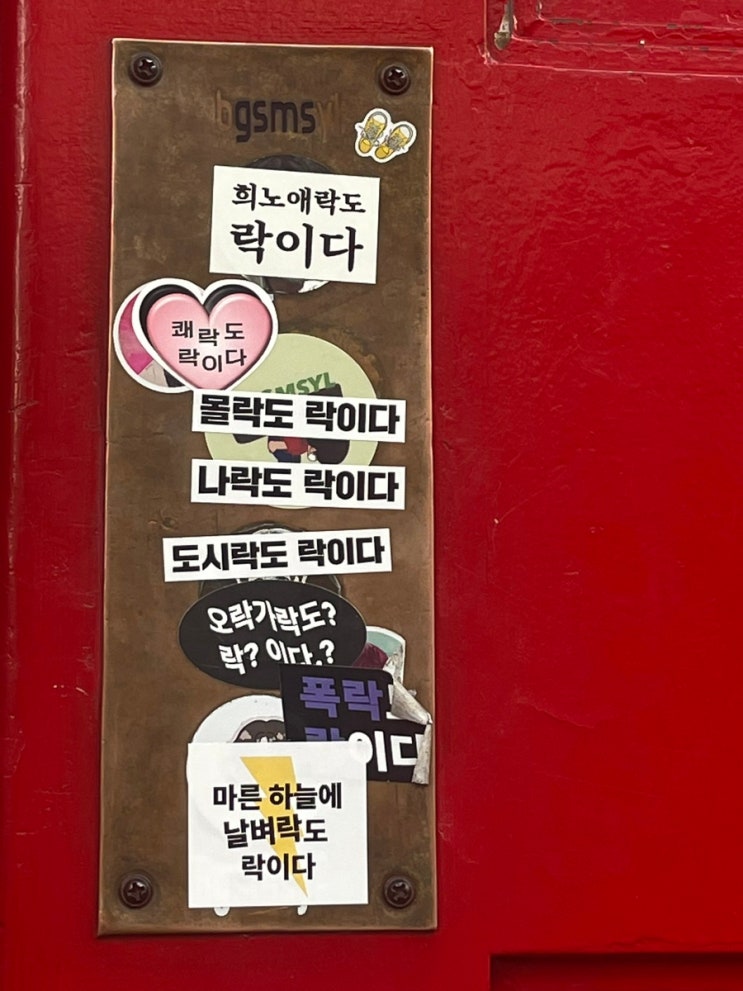 gsms
희노애락도
락이다
쾌락도
락이다
MSYL
몰락도 락이다
나락도 락이다
도시락도 락이다
오락가락도?
락? 이다.?
폭락
락이다
마른 하늘에
날벼락도
락이다